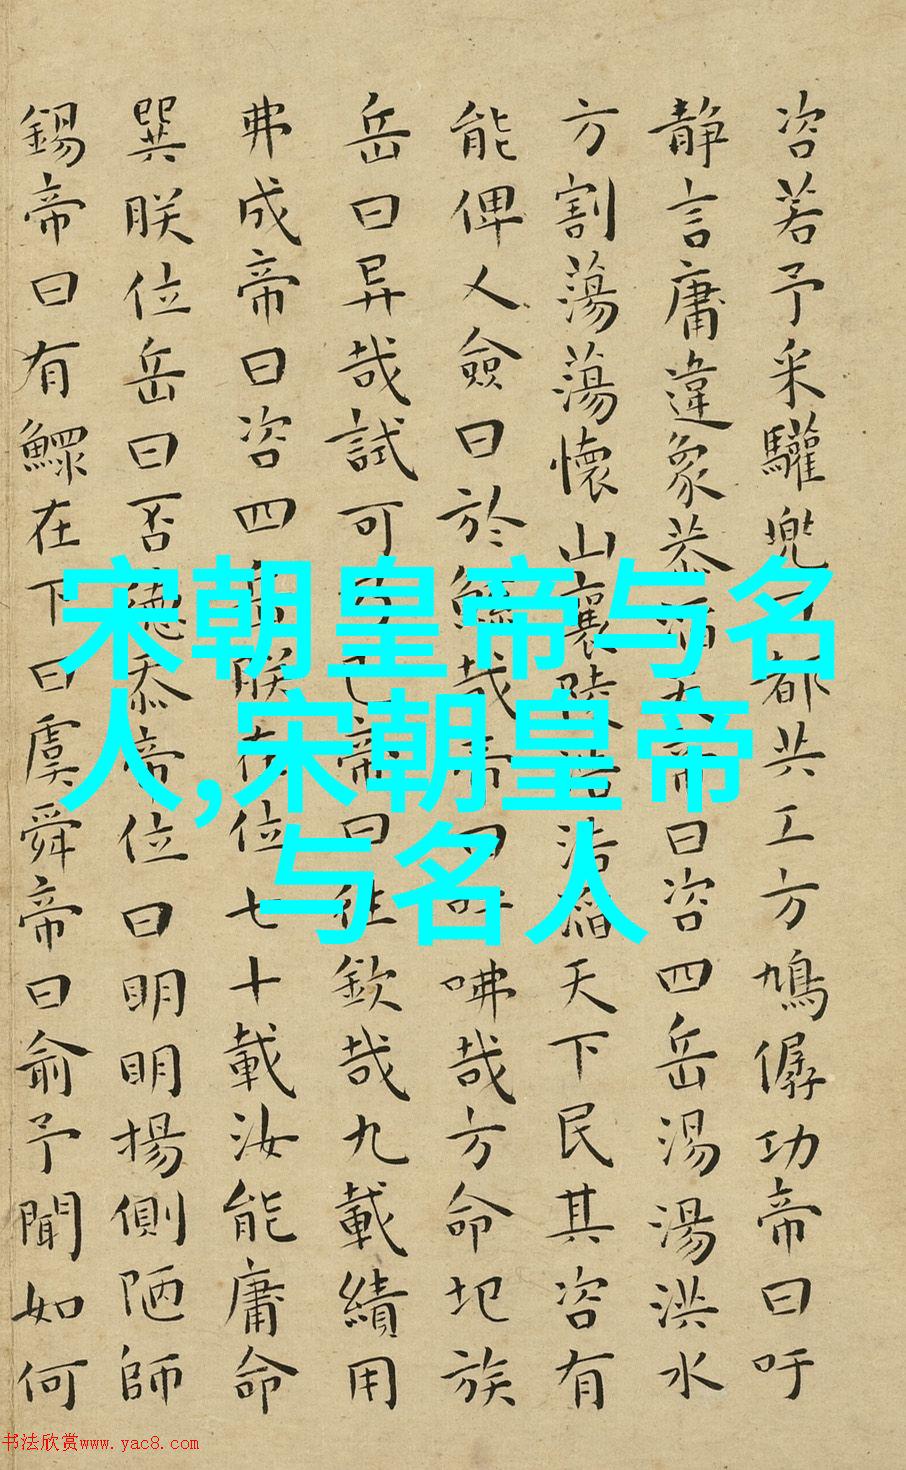 咨若予采驩兜曰都共工方鳩僝功帝曰吁
靜言庸違象恭滔天帝曰咨四岳湯湯洪水
方割蕩蕩懷山襄陵浩浩滔天下民其咨有
能俾乂僉曰於鯀哉帝曰吁咈哉方命圮族
岳曰异哉試可乃已帝曰往欽哉九載績用
弗成帝曰咨四岳朕在位七十載汝能庸命
巽朕位岳曰否德忝帝位曰明明揚側陋師
錫帝曰有鰥在下曰虞舜帝曰俞予聞如何
宋朝皇帝与名
人,宋朝皇帝
与名人
书法欣赏www.yac8.com